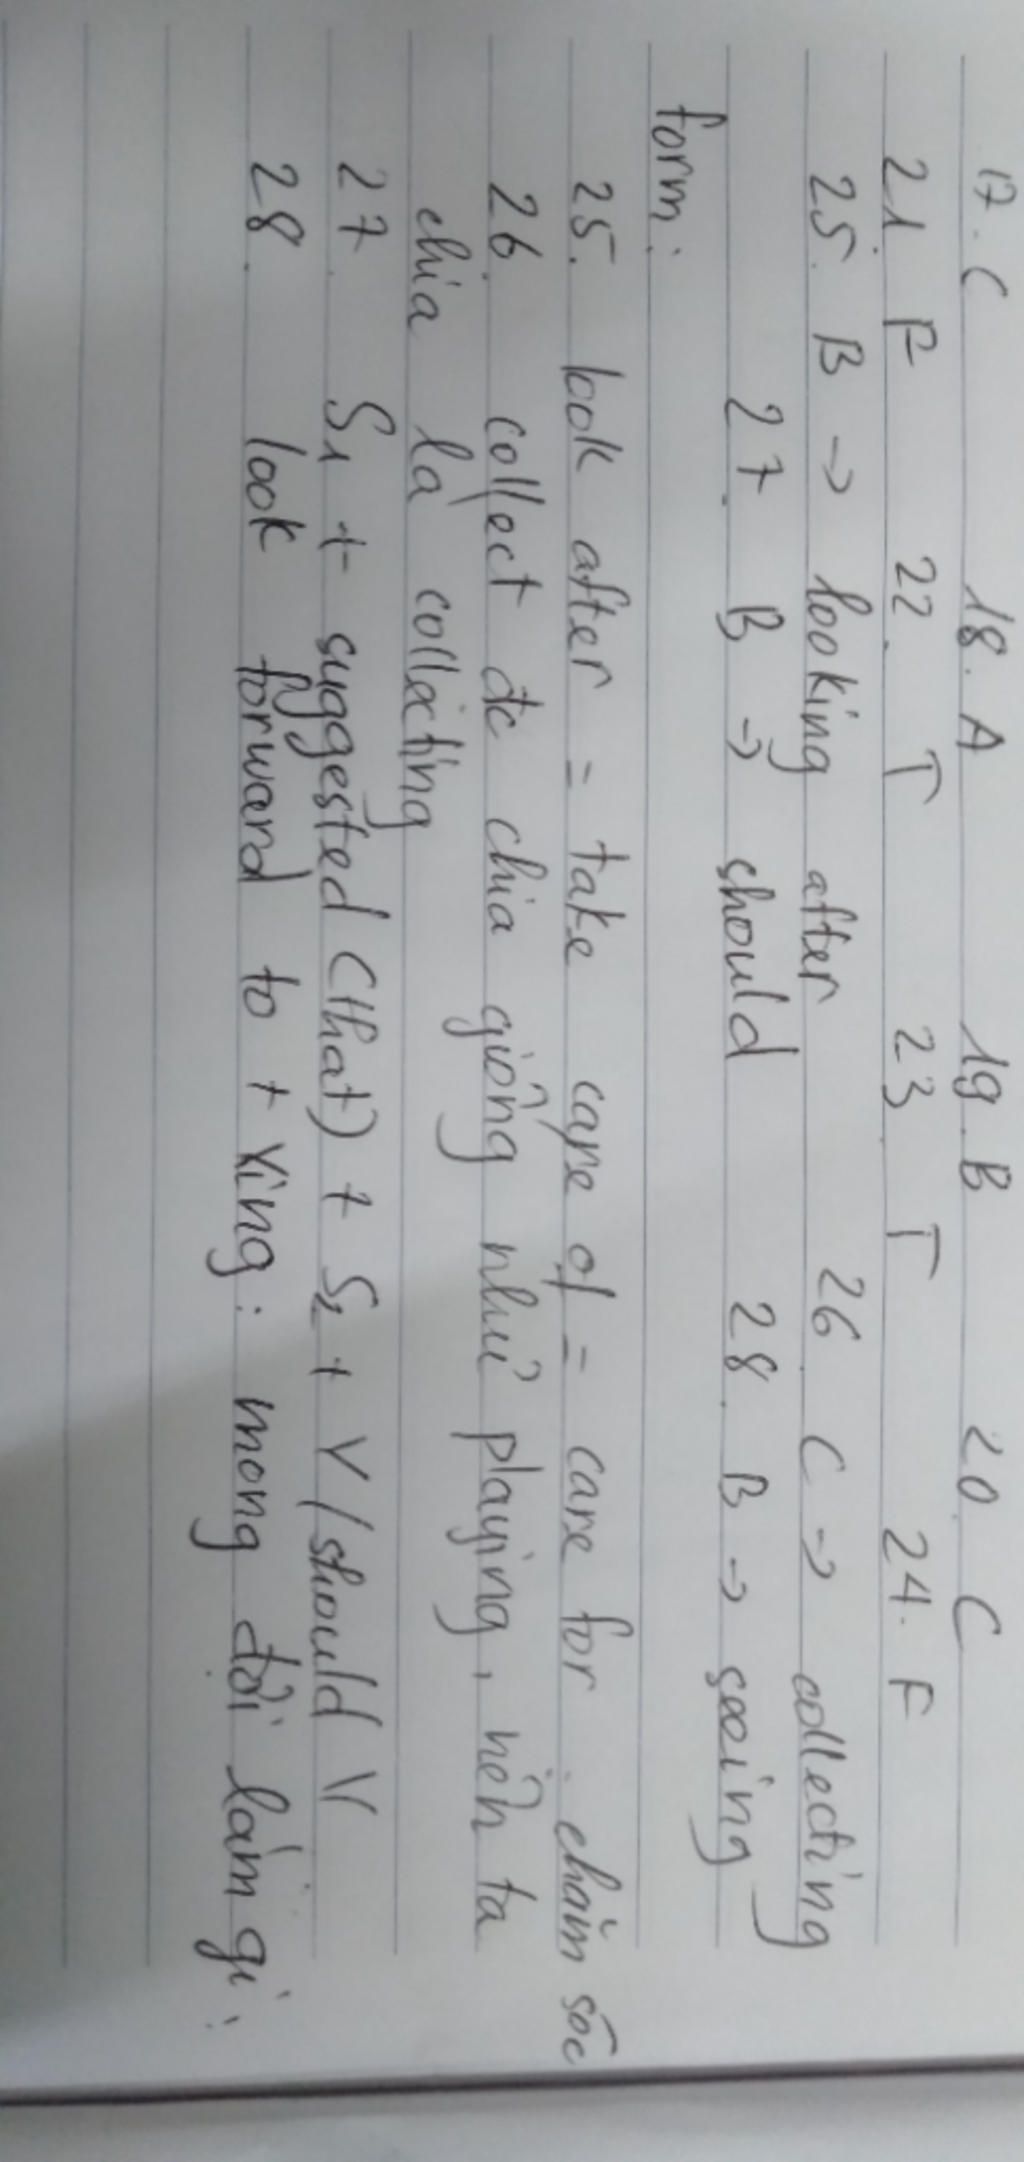 17. C 18. A 19. B 20. C
21 F 22. T 23. T 24. F
25. B → looking after 26. C → collecting
27. B → should 28. B → seeing
form:
25. look after = take care of = care for : chăm sóc
26. collect đc chia giống như playing, nên ta
chia là collecting
27. S₁ + suggested (that) + S₂ + V / should V
28. look forward to + Ving : mong đợi làm gì.